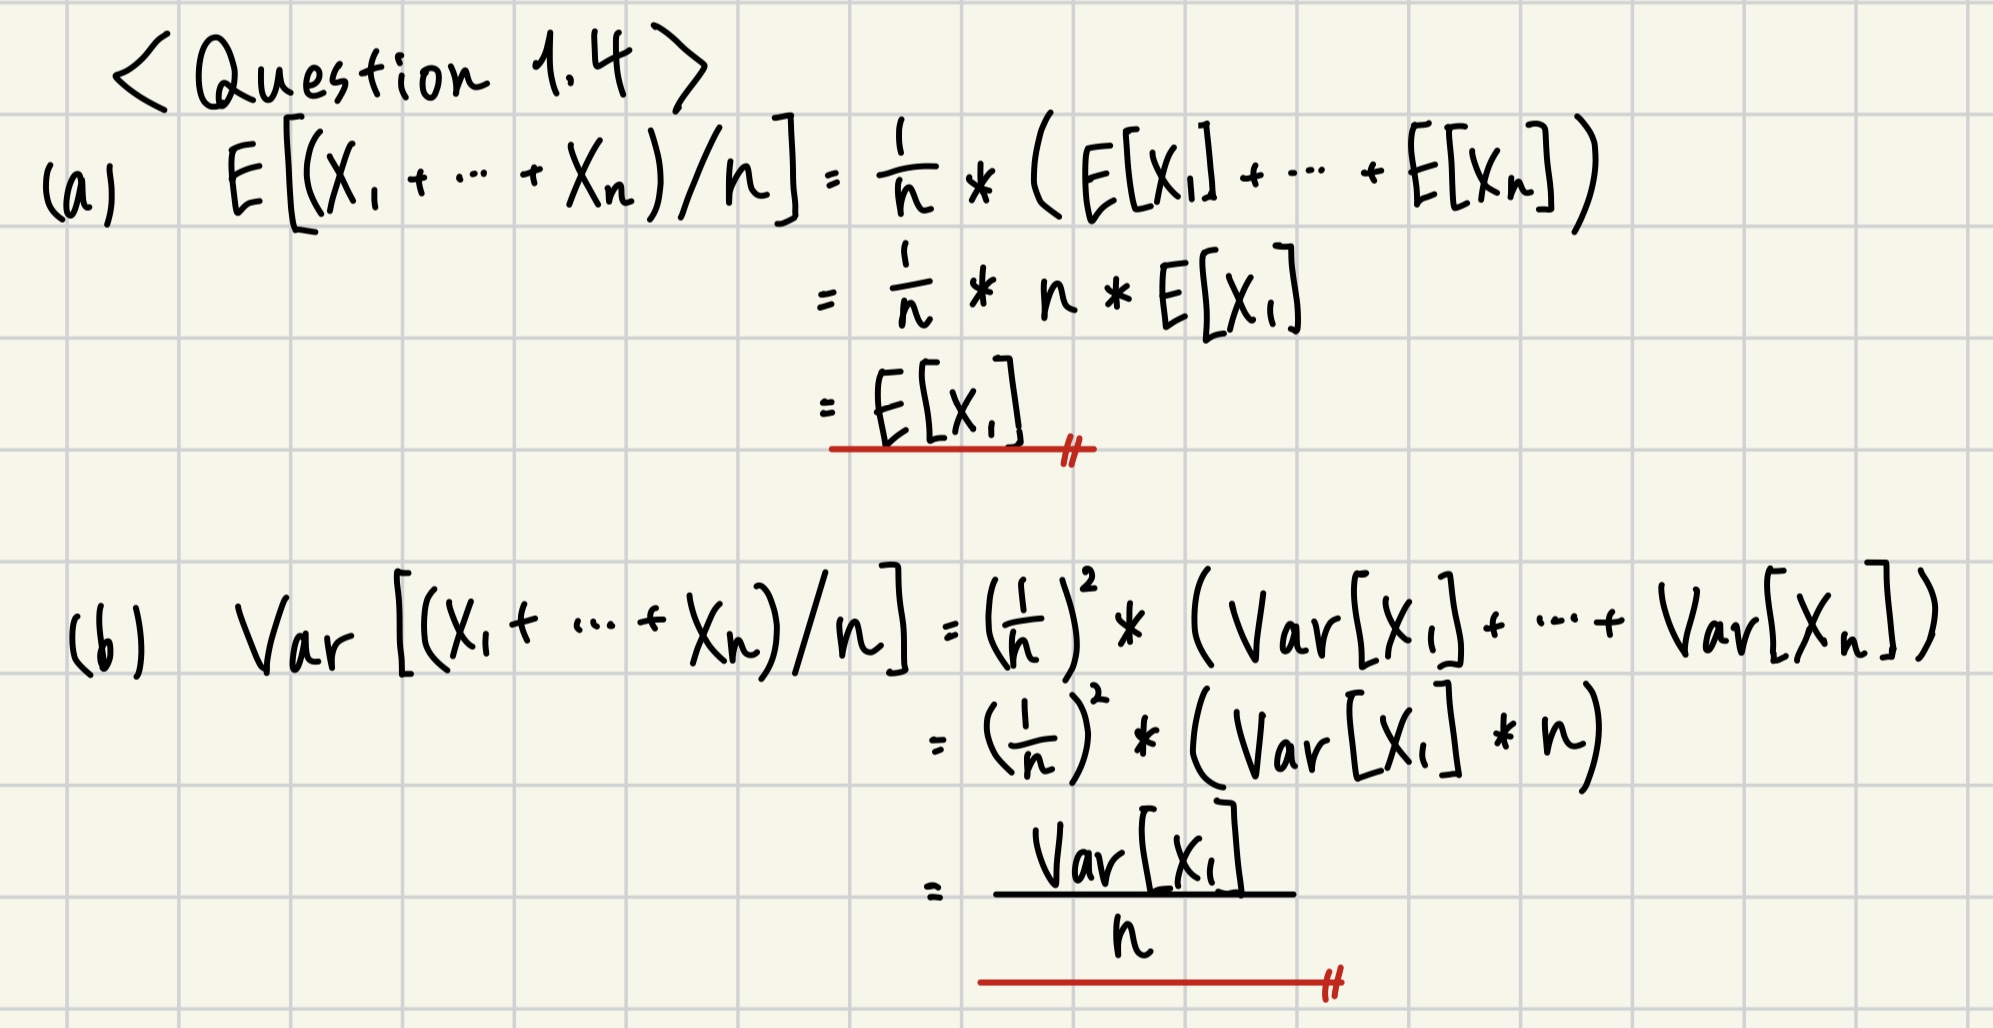 <Question 1.4>
(a) E[(X₁ + ... + Xₙ)/n] = 1/n * (E[X₁] + ... + E[Xₙ])
= 1/n * n * E[X₁]
= E[X₁]
(b) Var[(X₁ + ... + Xₙ)/n] = (1/n)² * (Var[X₁] + ... + Var[Xₙ])
= (1/n)² * (Var[X₁] * n)
= Var[X₁]/n